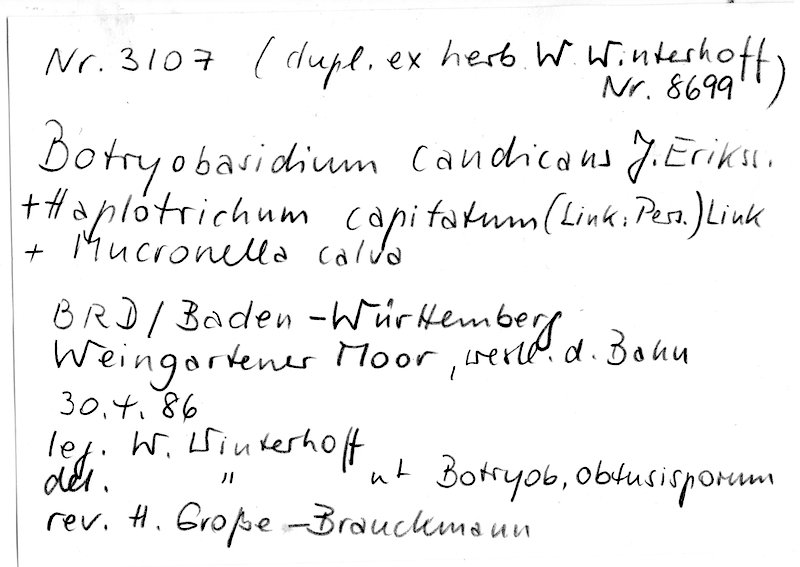 Nr. 3107 (dupl. ex herb W. Winterhoff
Nr. 8699)
Botryobasidium candicans J. Erikss.
+ Haplotrichum capitatum (Link: Pers.) Link
+ Mucronella calva
BRD/Baden-Württemberg
Weingartener Moor, westl. d. Bahn
30.4.86
leg. W. Winterhoff
det. " ut Botryob. obtusisporum
rev. H. Große-Brauckmann